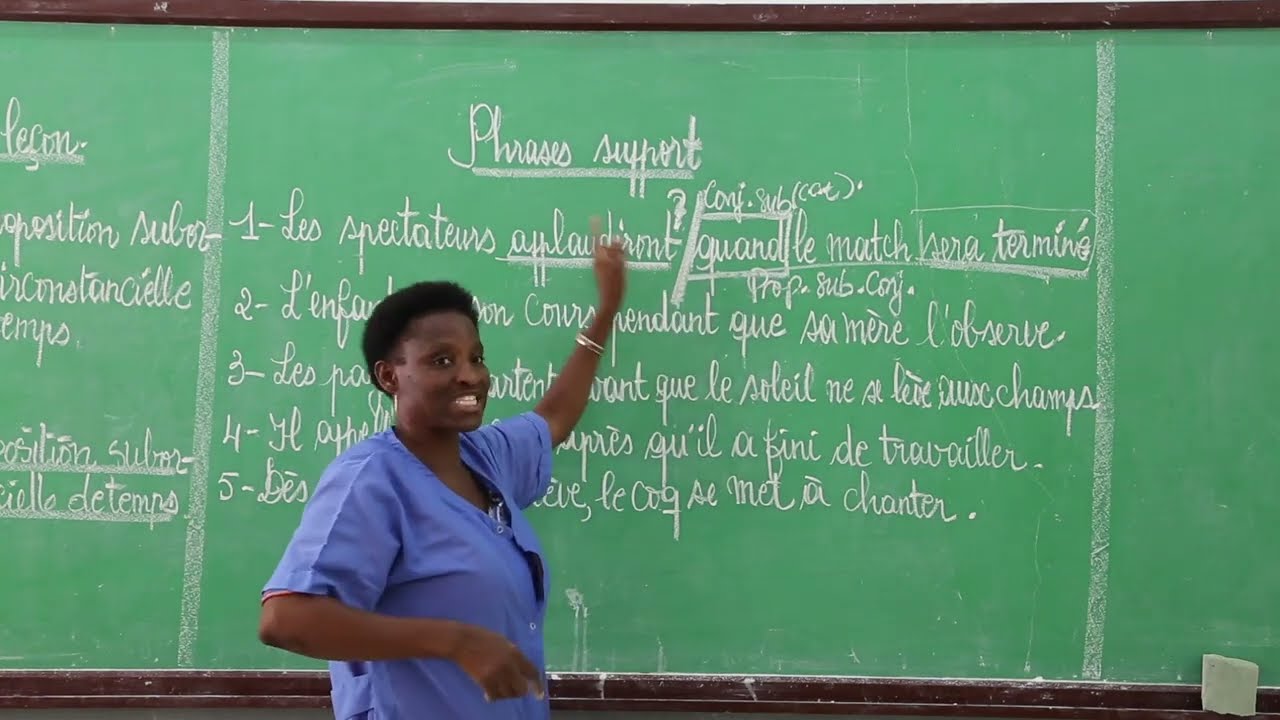 leçon.
oposition subor-
irconstancielle
emps.
position subor-
cielle de temps
Phrases support
Conj. sub (cct).
1- Les spectateurs applaudiront ? / quand le match sera terminé
Prop. Sub. Conj.
2- L'enfant son cours pendant que sa mère l'observe.
3- Les pa artent avant que le soleil ne se lève aux champs.
4- Il appell après qu'il a fini de travailler.
5- Dès lève, le coq se met à chanter.